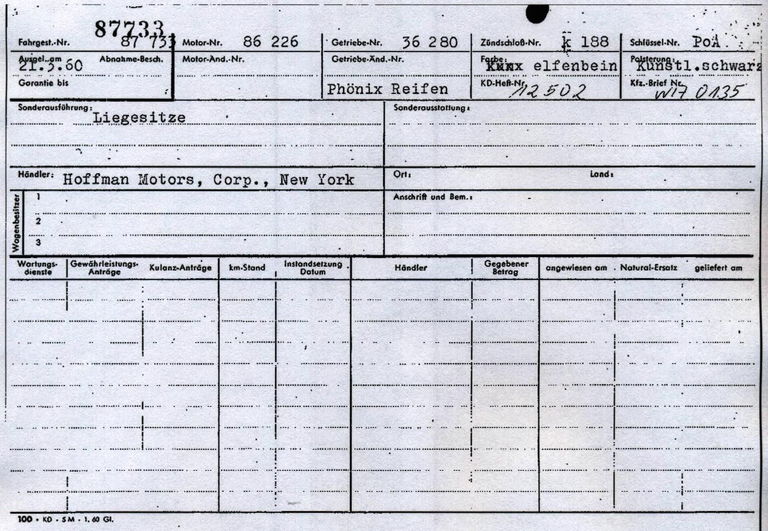 87733
Fahrgest.-Nr. 87 733 Motor-Nr. 86 226 Getriebe-Nr. 36 280 Zündschloß-Nr. k 188 Schlüssel-Nr. PoA
Ausgel. am 21.3.60 Abnahme-Besch. Motor-Änd.-Nr. Getriebe-Änd.-Nr. Farbe: elfenbein Polsterung: Kunstl.schwarz
Garantie bis Phönix Reifen KD-Heft-Nr. 12502 Kfz.-Brief Nr. 0135
Sonderausführung: Liegesitze Sonderausstattung:
Händler: Hoffman Motors, Corp., New York Ort: Land:
Wagenbesitzer 1 Anschrift und Bem.:
2
3
Wartungs- Gewährleistungs- Kulanz-Anträge km-Stand Instandsetzung Händler Gegebener angewiesen am Natural-Ersatz geliefert am
dienste Anträge Datum Betrag
100 • KD • 5M • 1. 60 Gl.